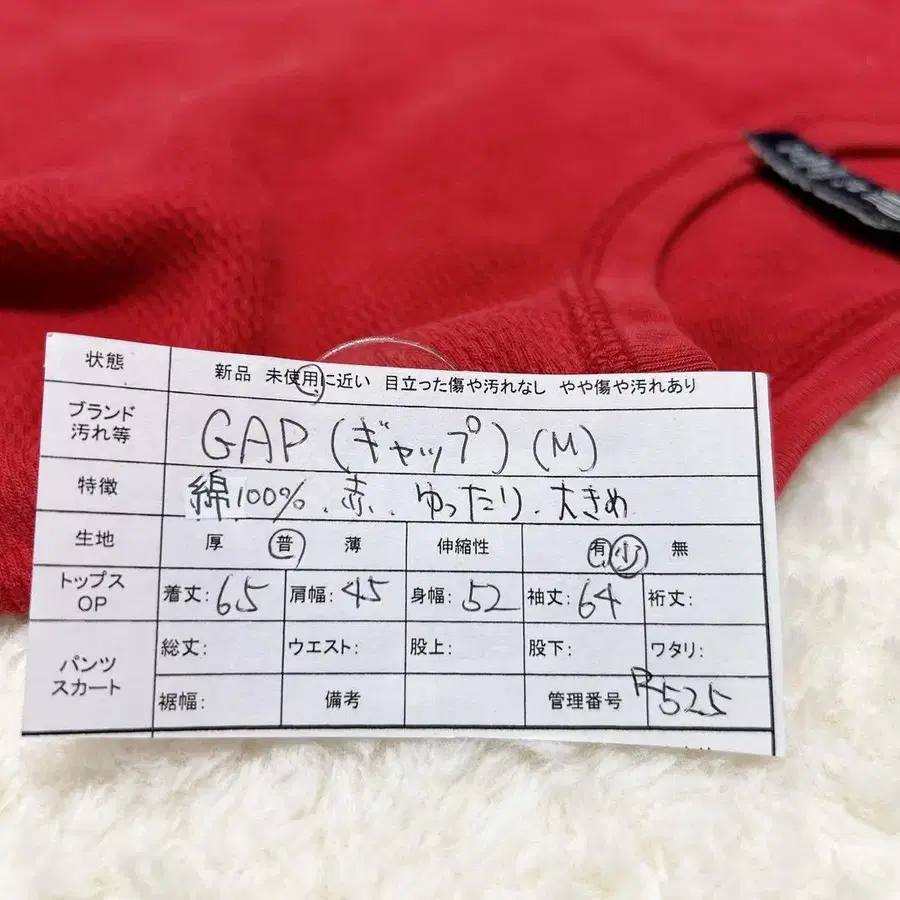 状態 新品 未使用に近い 目立った傷や汚れなし やや傷や汚れあり
ブランド
汚れ等
GAP (ギャップ) (M)
特徴 綿100%、赤、ゆったり、大きめ
生地 厚 普 薄 伸縮性 有 少 無
トップス
OP
着丈: 65 肩幅: 45 身幅: 52 袖丈: 64 裄丈:
パンツ
スカート
総丈: ウエスト: 股上: 股下: ワタリ:
裾幅: 備考 管理番号 R525